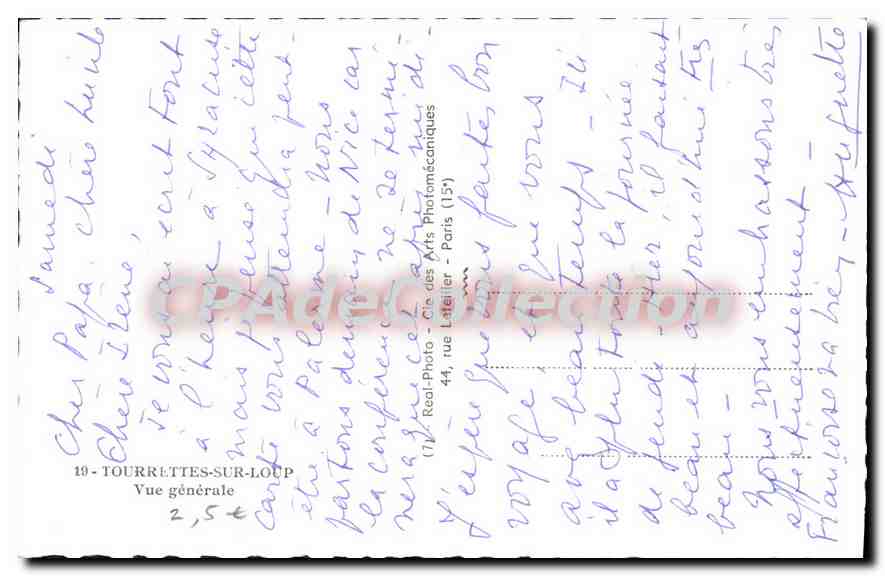 Samedi
Cher Papa, chère Lucile
Chère Irène,
Je vous ai écrit tout
à l'heure à Syracuse
mais je pense que cette
carte vous attendra peut-
être à Palerme - Nous
partons demain de Nice car
la conférence ne se termi-
nera que cet après midi -
J'espère que vous faites bon
voyage, et que vous
avez beau temps - Ici
il a plu toute la journée
de jeudi - Hier, il faisait
beau et aujourd'hui très
beau -
Nous vous embrassons très
affectueusement -
Françoise - Huguette
19 - TOURRETTES-SUR-LOUP
Vue générale
2,5 €
(7) Real-Photo - Cie des Arts Photomécaniques
44, rue Letellier - Paris (15e)
CPAdeCollection